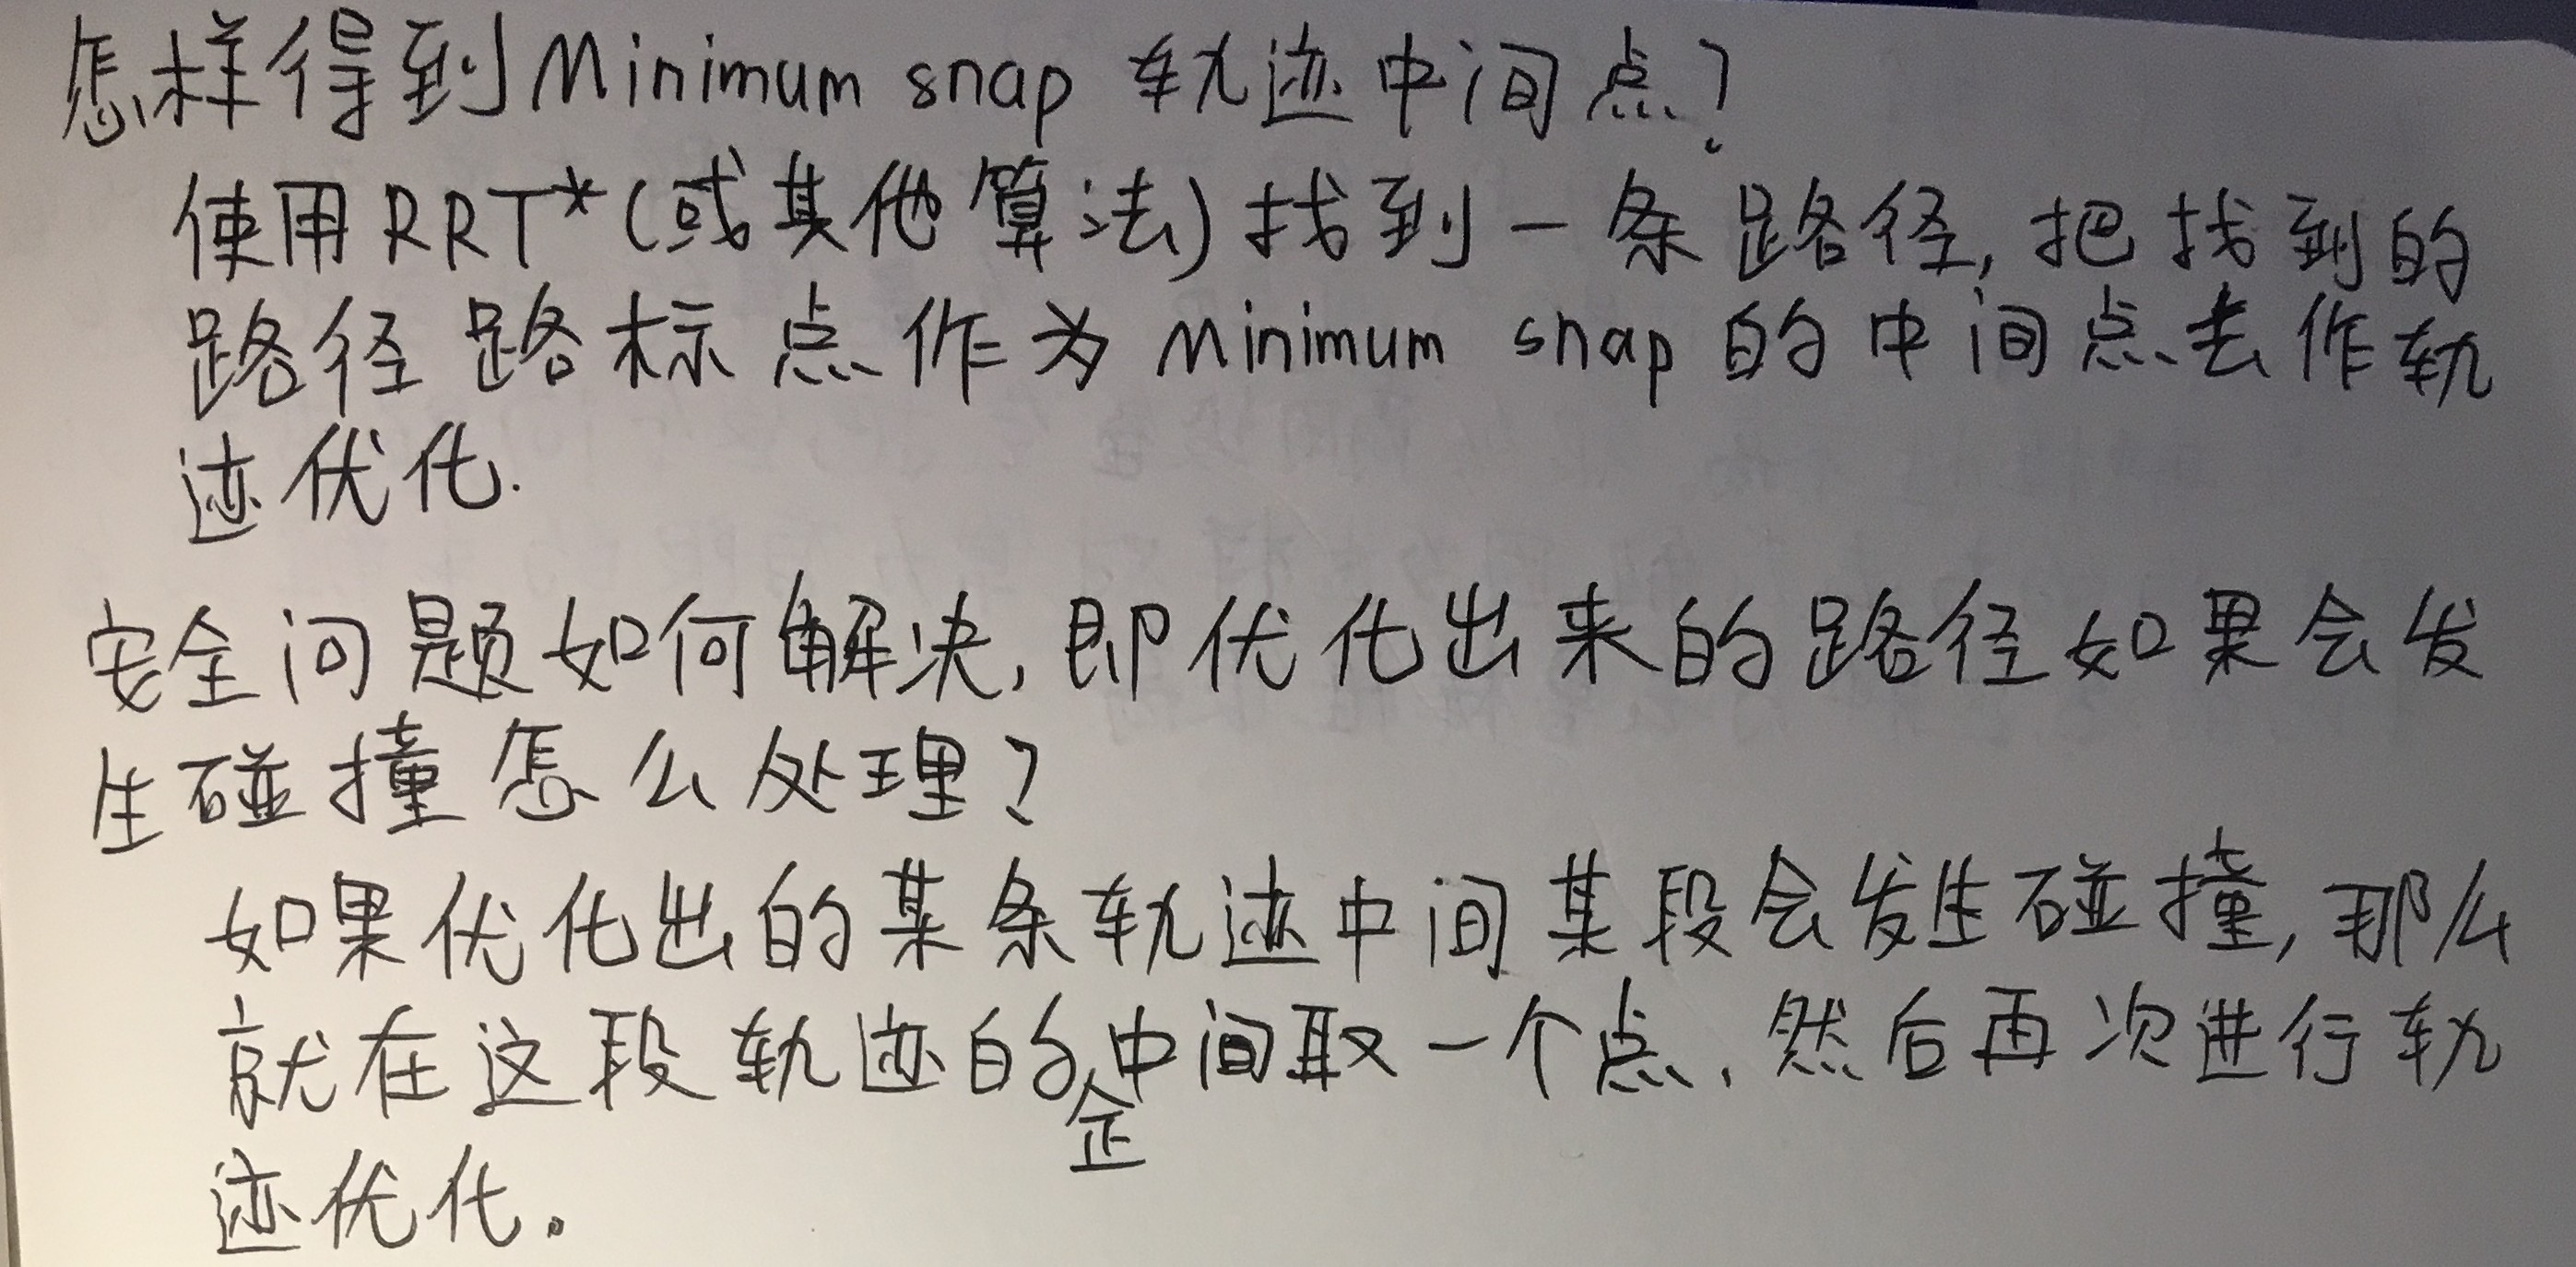 怎样得到Minimum snap 轨迹中间点?
使用RRT*(或其他算法)找到一条路径,把找到的
路径路标点作为 Minimum snap 的中间点去作轨
迹优化.
安全问题如何解决,即优化出来的路径如果会发
生碰撞怎么处理?
如果优化出的某条轨迹中间某段会发生碰撞,那么
就在这段轨迹的中间取一个点,然后再次进行轨
迹优化。